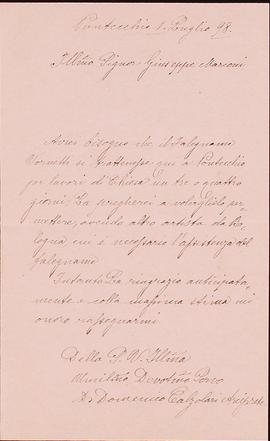 Pontecchio 1. Luglio 98.
Illmo Signor Giuseppe Marconi
Avrei bisogno che il falegname
Vornetti si trattenesse qui a Pontecchio
per lavori di Chiesa un tre o quattro
giorni; La pregherei a volerglielo per-
mettere, avendo altro artista da Bo-
logna cui è necessario l'assistenza del
falegname
Intanto La ringrazio anticipata-
mente e colla massima stima mi
onoro rassegnarmi
Della S. V. Illma
Umilmo Devotmo Servo
D. Domenico Calzolari Arciprete